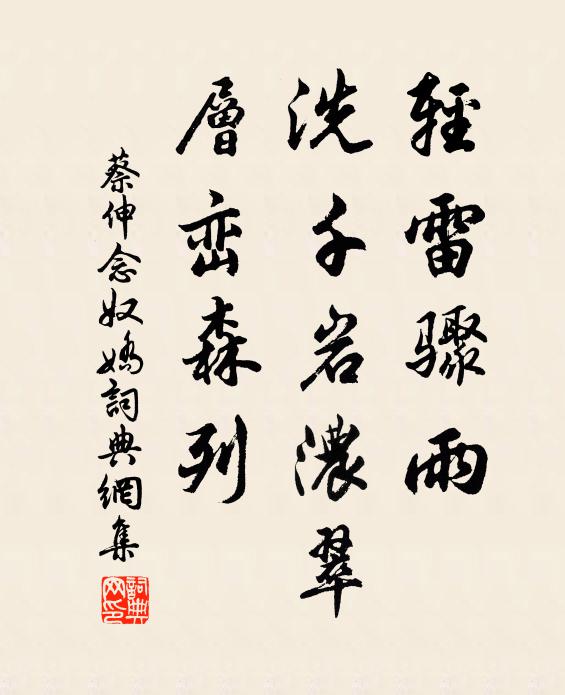 輕雷驟雨
洗千岩濃翠
層峦森列
蔡伸念奴嬌詞典網集
詞典网印